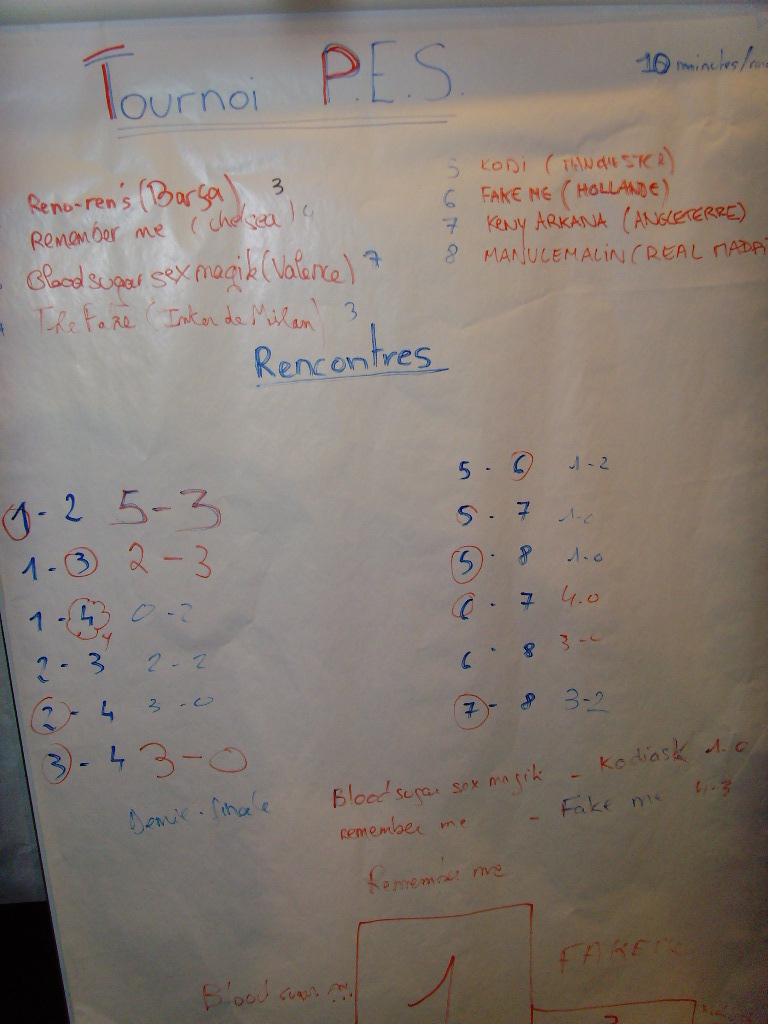 Tournoi P.E.S.
10 minutes/
Reno-ren's (Barça) 3
Remember me (chelsea)
Blood sugar sex magik (Valence) 7
The Fake (Inter de Milan) 3
5 KODI (MANCHESTER)
6 FAKE ME (HOLLANDE)
7 KENY ARKANA (ANGLETERRE)
8 MANULEMALIN (REAL MADRI
Rencontres
1 - 2 5-3
1 - 3 2-3
1 - 4 0-2
2 - 3 2-2
2 - 4 3-0
3 - 4 3-0
5 - 6 1-2
5 - 7
5 - 8 1-0
6 - 7 4.0
6 - 8
7 - 8 3-2
Demie-finale
Blood sugar sex magik - Kodiask 1.0
remember me - Fake me 4-3
Remember me
1
FAKE
Blood sugar